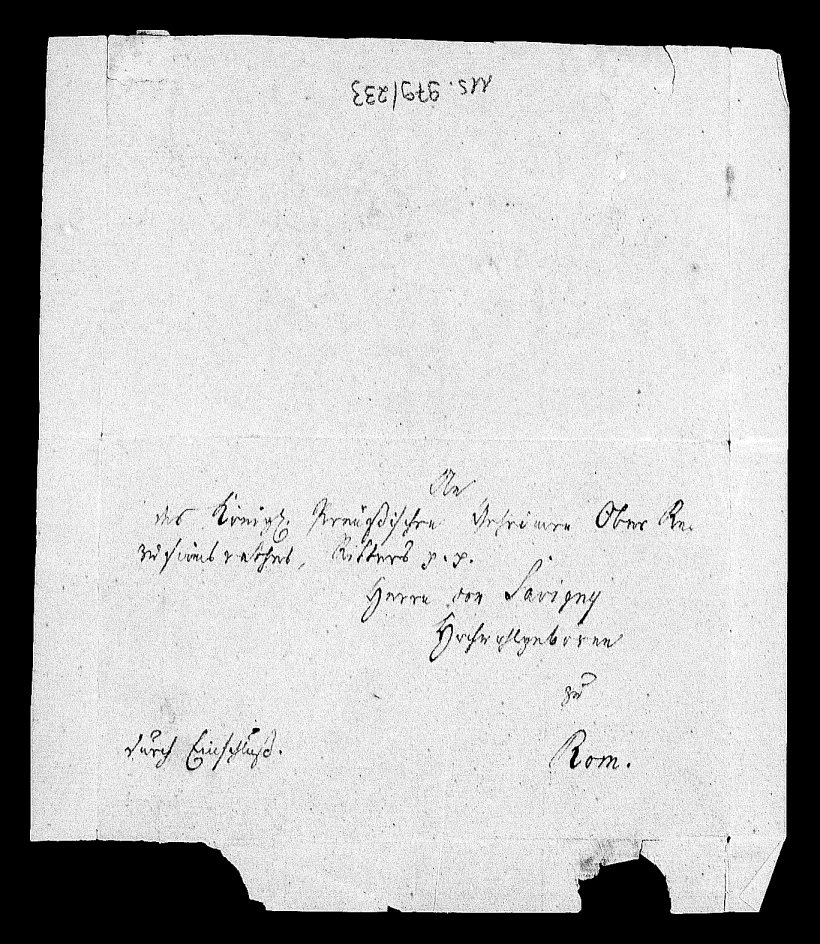 Ms. 979/233
An
des Königl. Preußischen Geheimen Ober Re-
visionsrathes, Ritters p. p.
Herrn von Savigny
Hochwohlgeboren
zu
durch Einschluß.
Rom.